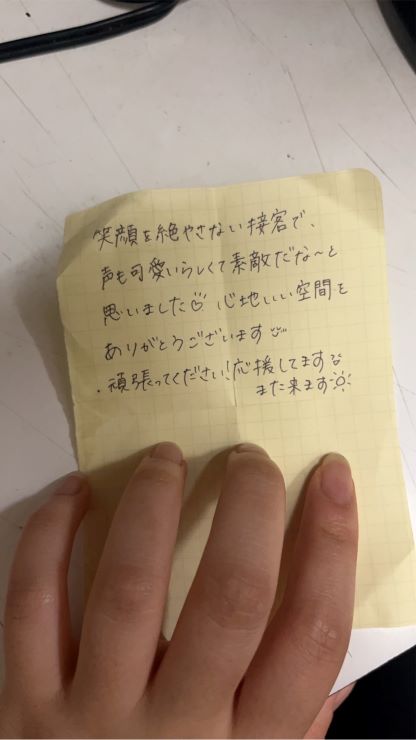 笑顔を絶やさない接客で、
声も可愛いらしくて素敵だな〜と
思いました 心地しい空間を
ありがとうございます
・頑張ってください!応援してます
また来ます